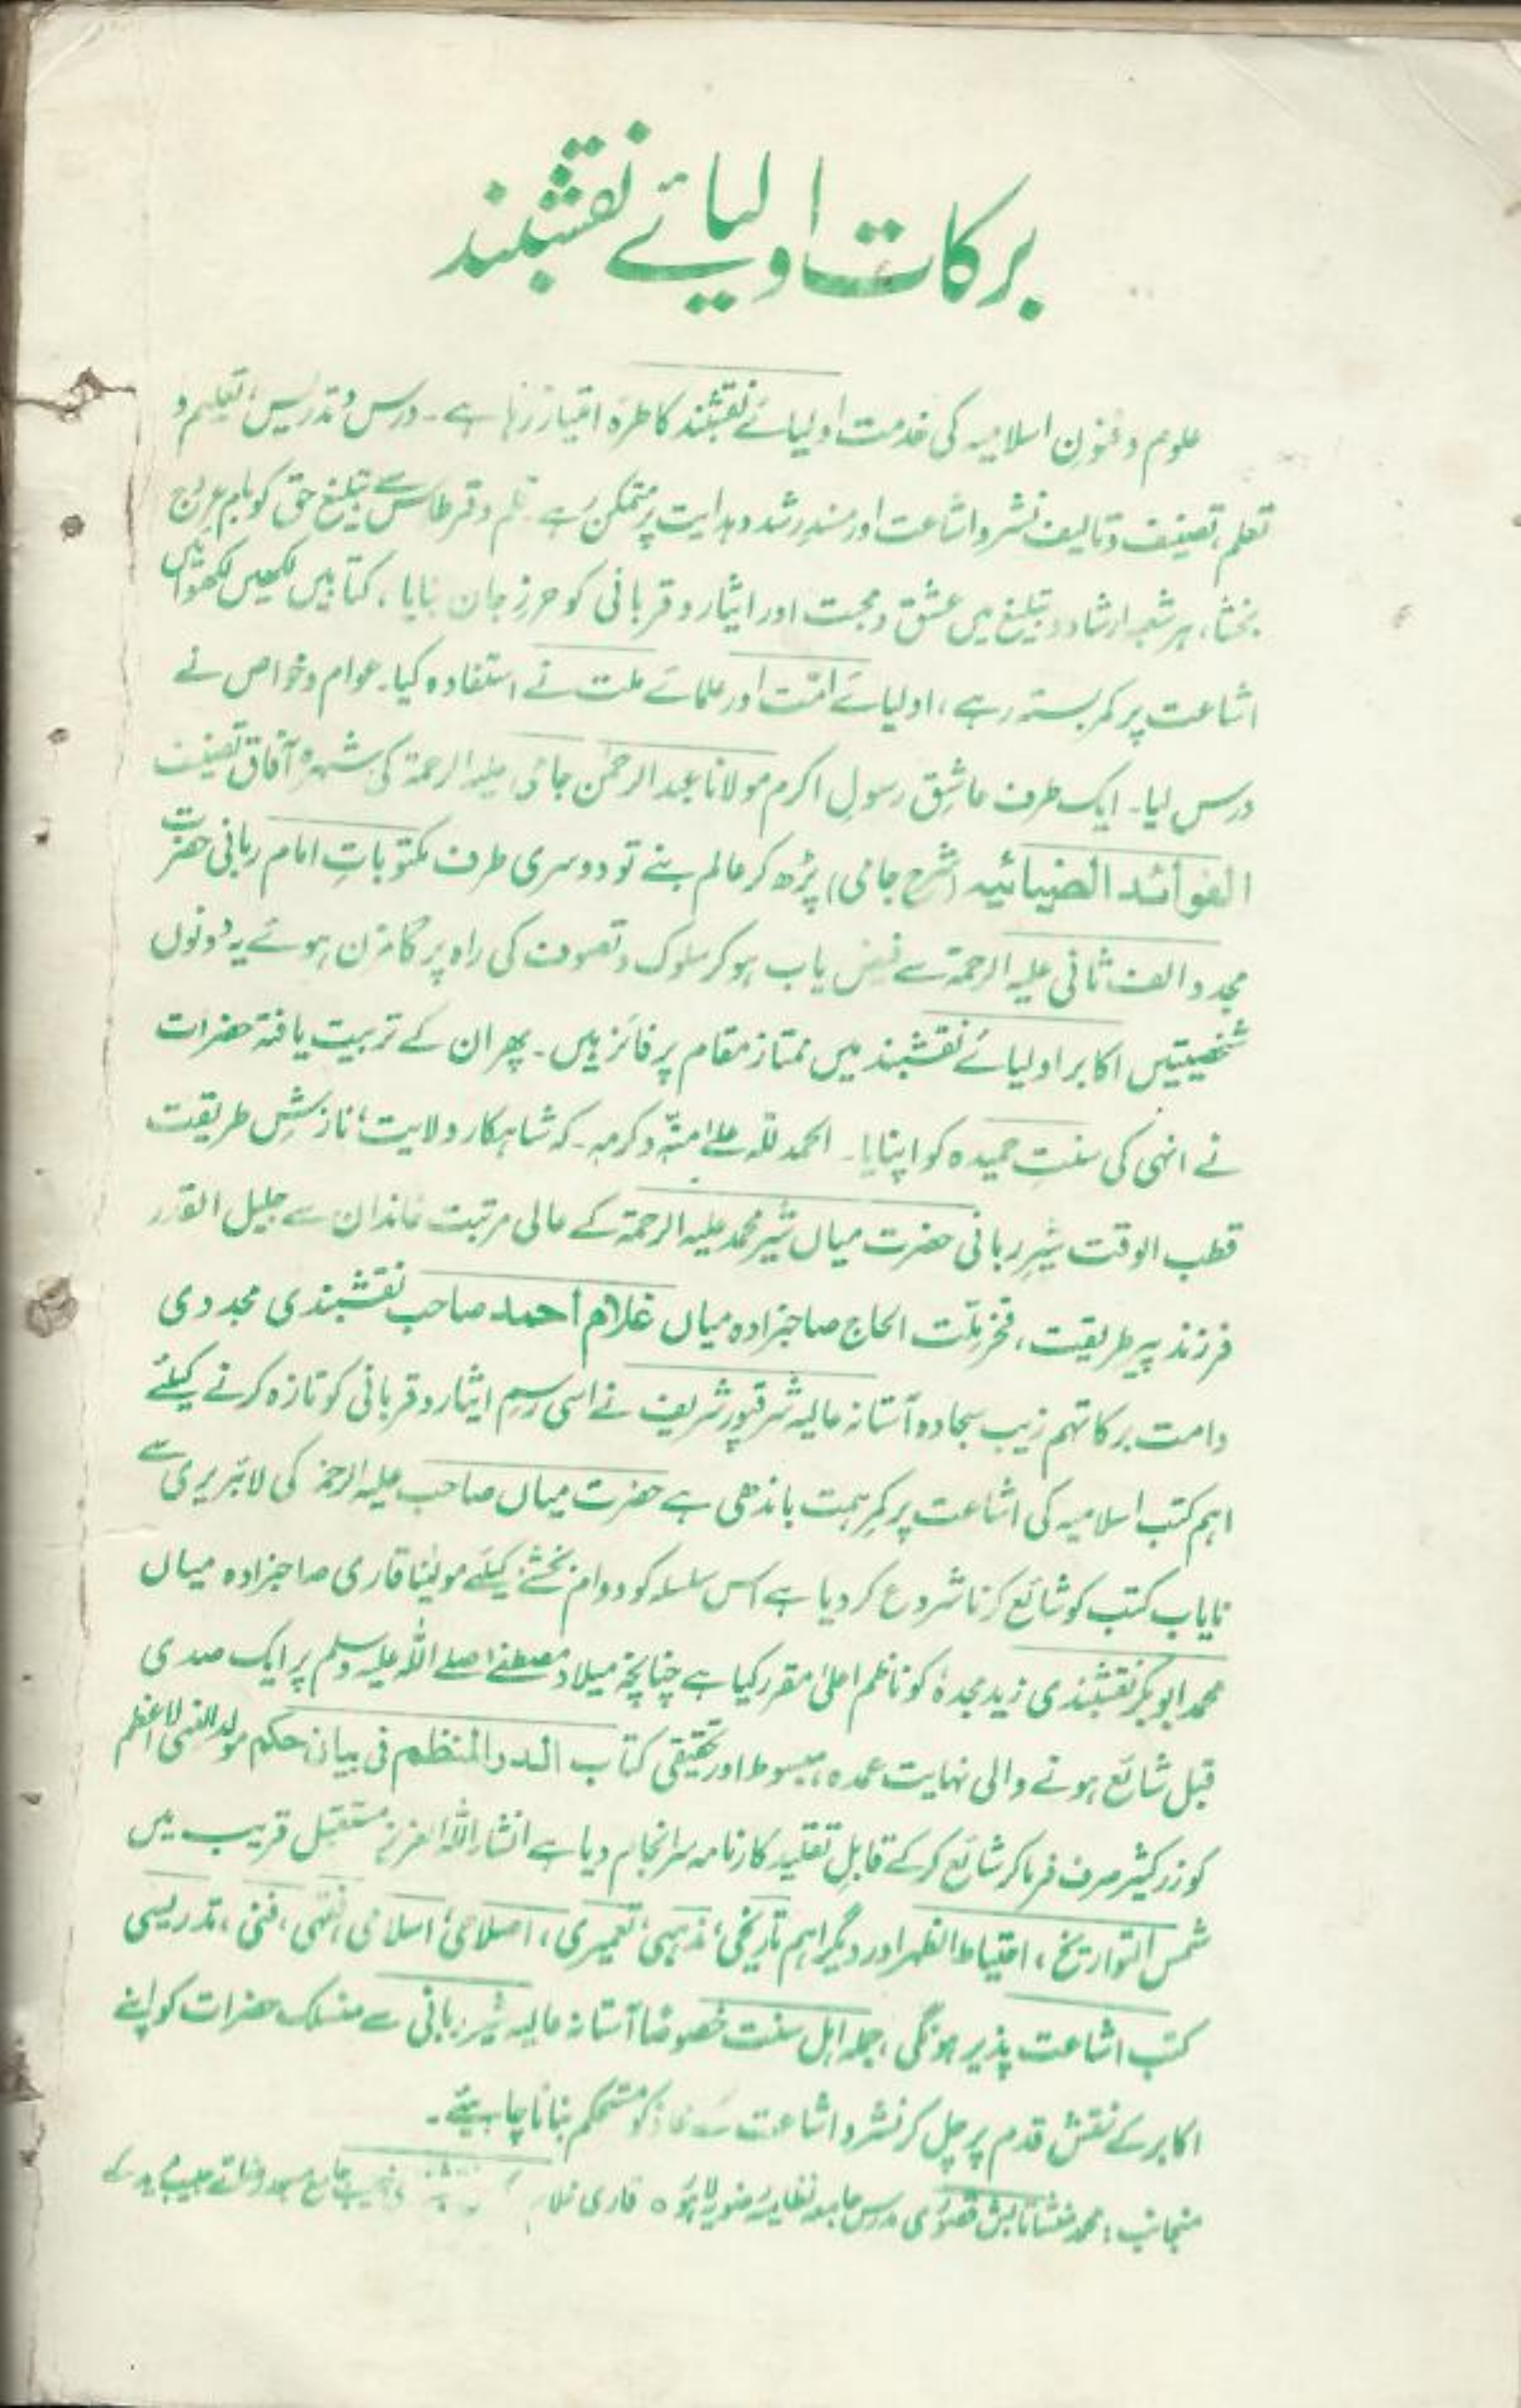 برکات اولیائے نقشبند
علوم و فنونِ اسلامیہ کی خدمت اولیائے نقشبند کا طرہ امتیاز رہا ہے۔ درس و تدریس، تعلیم و
تعلم، تصنیف و تالیف نشر و اشاعت اور مسندِ رشد و ہدایت پر متمکن رہے۔ قلم و قرطاس سے تبلیغ حق کو بام عروج
بخشا، ہر شعبہ ارشاد و تبلیغ میں عشق و محبت اور ایثار و قربانی کو حرز جان بنایا، کتابیں لکھیں لکھوائیں
اشاعت پر کمر بستہ رہے، اولیائے امت اور علمائے ملت نے استفادہ کیا۔ عوام و خواص نے
درس لیا۔ ایک طرف عاشقِ رسولِ اکرم مولانا عبدالرحمٰن جامی علیہ الرحمۃ کی شہرہ آفاق تصنیف
الفوائد الضیائیہ (شرح جامی) پڑھ کر عالم بنے تو دوسری طرف مکتوباتِ امام ربانی حضرت
مجدد الف ثانی علیہ الرحمۃ سے فیض یاب ہو کر سلوک و تصوف کی راہ پر گامزن ہوئے یہ دونوں
شخصیتیں اکابر اولیائے نقشبند میں ممتاز مقام پر فائز ہیں۔ پھر ان کے تربیت یافتہ حضرات
نے انہی کی سنتِ حمیدہ کو اپنایا۔ الحمد للہ علیٰ منّہ و کرمہ۔ کہ شاہکار ولایت، نازشِ طریقت
قطب الوقت شیرِ ربانی حضرت میاں شیر محمد علیہ الرحمۃ کے عالی مرتبت خاندان سے جلیل القدر
فرزند پیر طریقت، فخر ملّت الحاج صاحبزادہ میاں غلام احمد صاحب نقشبندی مجددی
دامت برکاتہم زیب سجادہ آستانہ عالیہ شرقپور شریف نے اسی رسمِ ایثار و قربانی کو تازہ کرنے کیلئے
اہم کتب اسلامیہ کی اشاعت پر کمرِ ہمت باندھی ہے حضرت میاں صاحب علیہ الرحمۃ کی لائبریری سے
نایاب کتب کو شائع کرنا شروع کر دیا ہے اس سلسلہ کو دوام بخشنے کیلئے مولینٰا قاری صاحبزادہ میاں
محمد ابوبکر نقشبندی زید مجدہٗ کو ناظم اعلیٰ مقرر کیا ہے چنانچہ میلاد مصطفےٰ صلے اللہ علیہ وسلم پر ایک صدی
قبل شائع ہونے والی نہایت عمدہ، مبسوط اور تحقیقی کتاب الدر المنظم فی بیان حکم مولد النبی الاعظم
کو زر کثیر صرف فرما کر شائع کر کے قابلِ تقلید کارنامہ سرانجام دیا ہے انشاء اللہ العزیز مستقبل قریب میں
شمس التواریخ، احتیاط الظہر اور دیگر اہم تاریخی، مذہبی، تعمیری، اصلاحی، اسلامی، فقہی، فنی، تدریسی
کتب اشاعت پذیر ہونگی، جملہ اہل سنت خصوصاً آستانہ عالیہ شیر ربانی سے منسلک حضرات کو اپنے
اکابر کے نقش قدم پر چل کر نشر و اشاعت کے محاذ کو مستحکم بنانا چاہیئے۔
منجانب: محمد منشا تابش قصوری مدرس جامعہ نظامیہ رضویہ لاہور ○ قاری غلام خطیب جامع مسجد